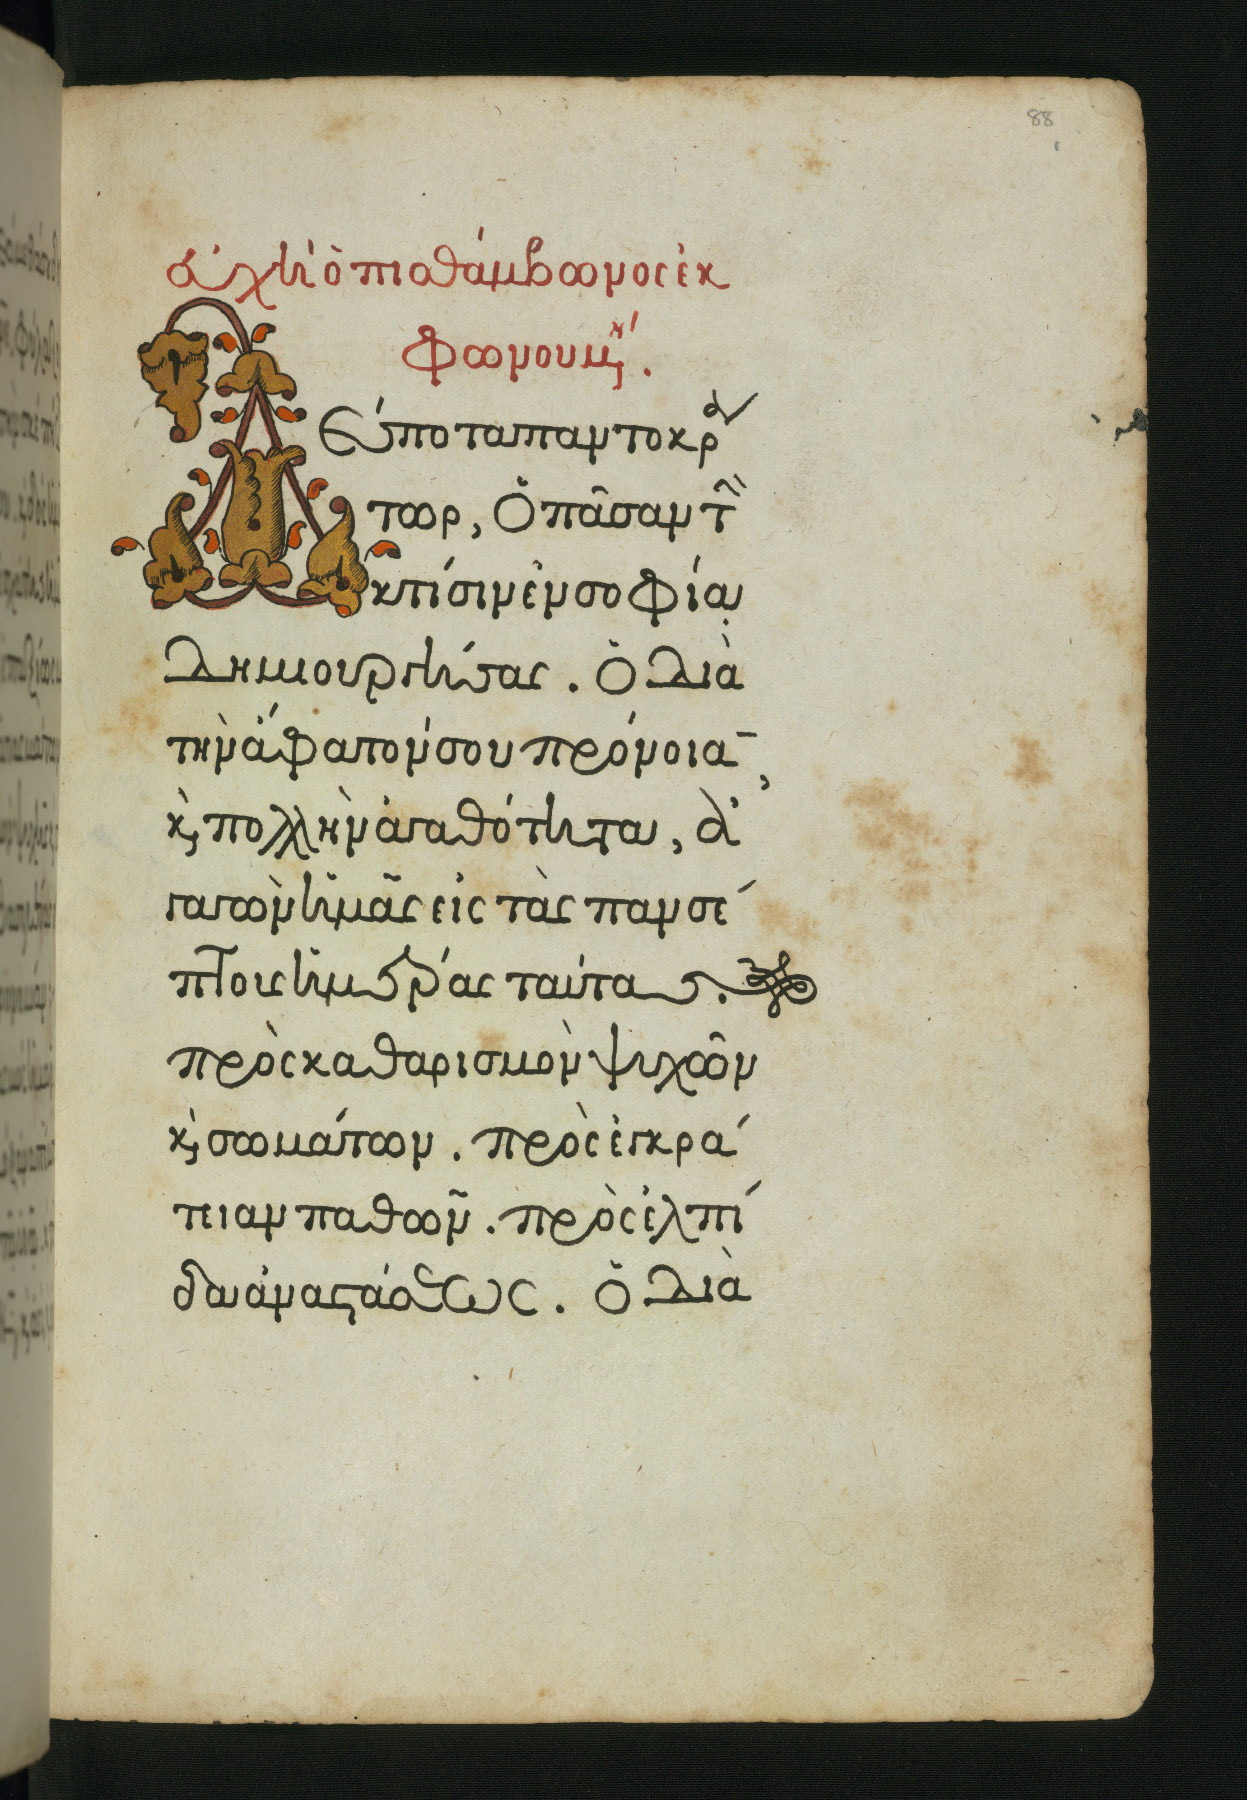 88
εὐχὴ ὀπισθάμβωνος ἐκ
φωνουμ(έν)η.
Δέσποτα παντοκρά
τωρ, ὁ πᾶσαν τὴν
κτίσιν ἐν σοφία
δημιουργήσας. ὁ διὰ
τὴν ἄφατόν σου πρόνοιαν,
κ(αὶ) πολλὴν ἀγαθότητα, ἀ
γαγὼν ἡμᾶς εἰς τὰς πανσέ
πτους ἡμέρας ταύτας.
πρὸς καθαρισμὸν ψυχῶν
κ(αὶ) σωμάτων. πρὸς ἐγκρά
τειαν παθῶν. πρὸς ἐλπί
δα ἀναστάσεως. ὁ διὰ